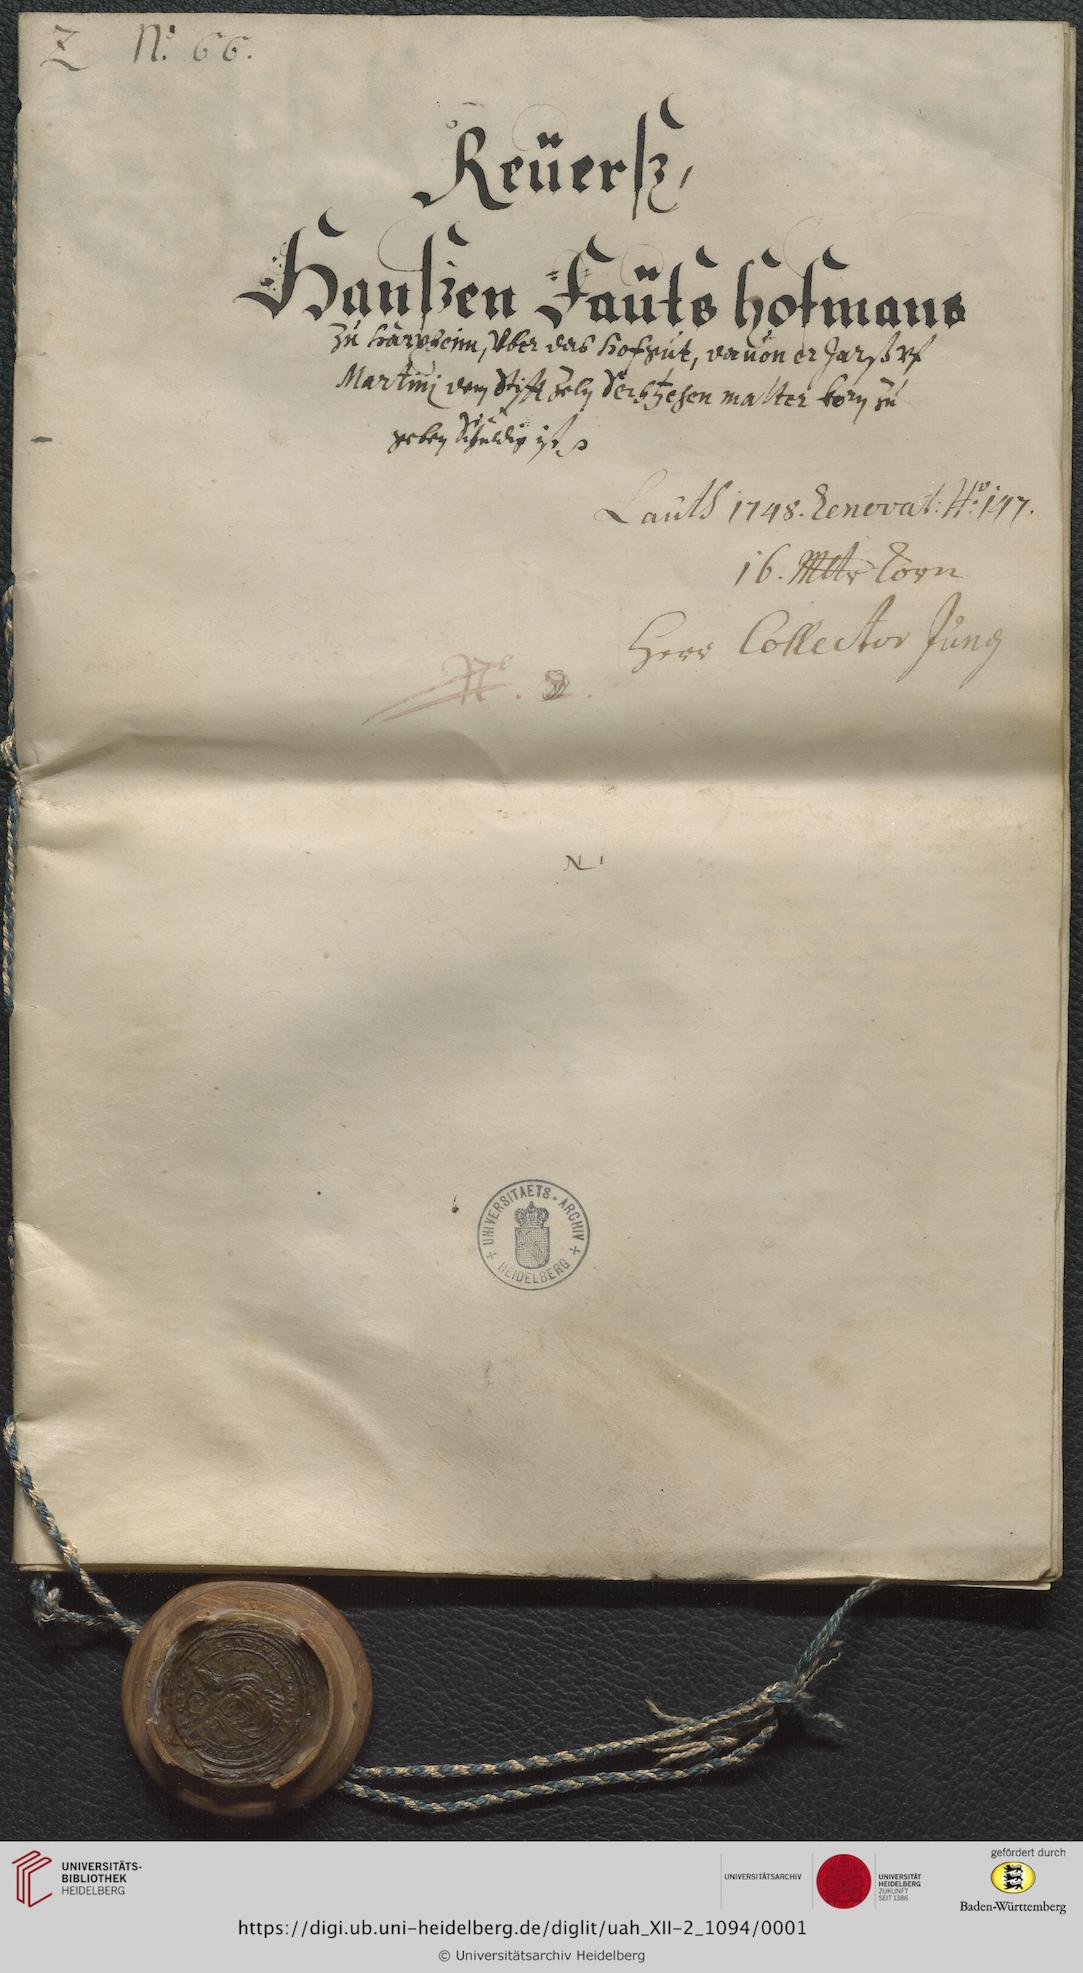 Z N.o 66.
Reüerß,
Hanßen Faüts hofmans
zu Harxheim, Vber das hofgut, dauon er Jarß vf
Martinj dem Stifft Zeln Sechzehen malter korn zu
geben schuldig ist
Lauth 1748. Renovat: No: 147.
16. Mltr Korn
Herr Collector Jung
No. 2.
N 1
UNIVERSITAETS-ARCHIV
HEIDELBERG
UNIVERSITÄTS-
BIBLIOTHEK
HEIDELBERG
UNIVERSITÄTSARCHIV
UNIVERSITÄT
HEIDELBERG
ZUKUNFT
SEIT 1386
gefördert durch
Baden-Württemberg
https://digi.ub.uni-heidelberg.de/diglit/uah_XII-2_1094/0001
© Universitätsarchiv Heidelberg